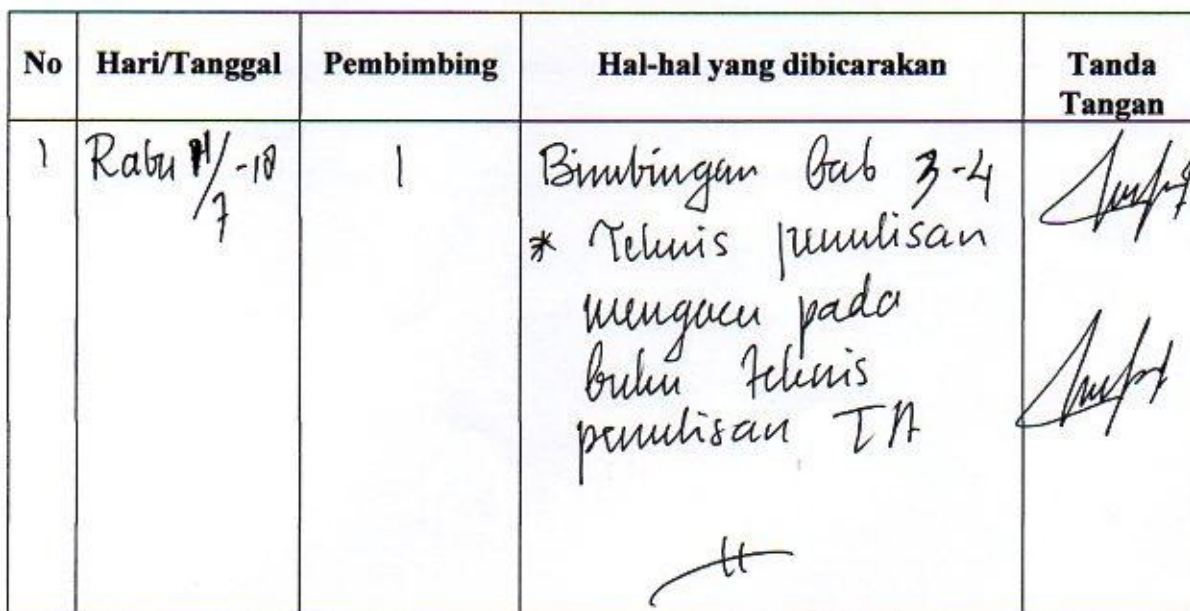 No Hari/Tanggal Pembimbing Hal-hal yang dibicarakan Tanda
Tangan
1 Rabu 11/7-18 1 Bimbingan bab 3-4
* Teknis penulisan
mengacu pada
buku teknis
penulisan TA